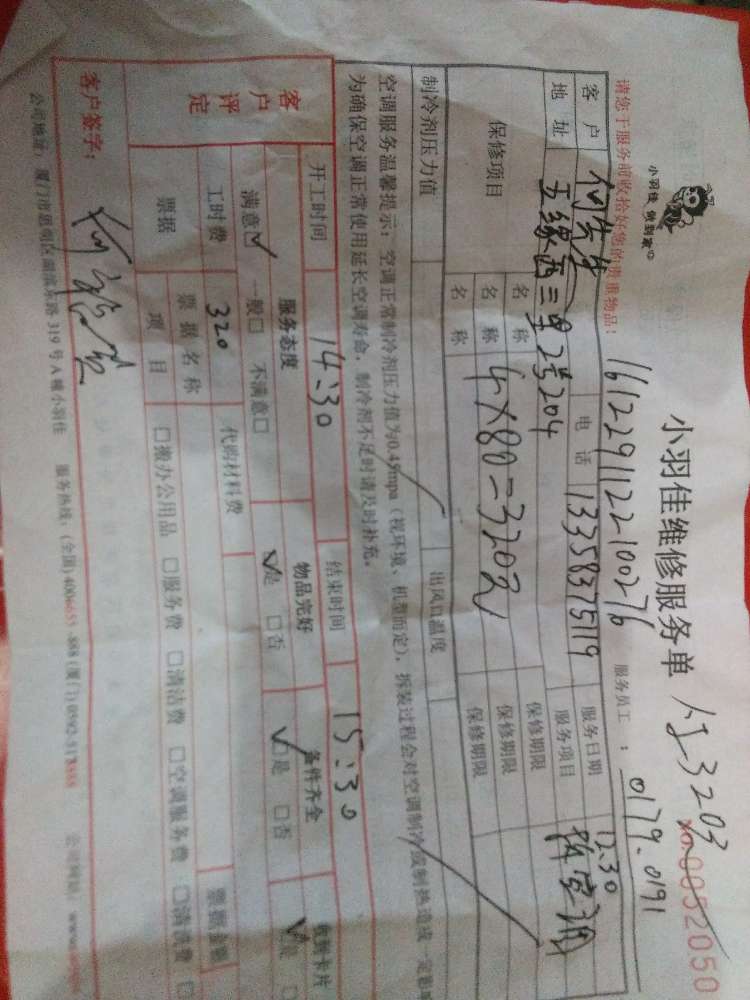 小羽佳 做到家
小羽佳维修服务单
No.0052050
请您于服务前收拾好您的贵重物品：
1612291122100276
服务员工：0179.0191
客户 何先生 电话 13358375119 服务日期 12.30
地址 五缘西三里2号204 服务项目 拆空调
保修项目
名称 保修期限
名称 4×80=320元 保修期限
名称 保修期限
制冷剂压力值 出风口温度
空调服务温馨提示：空调正常制冷剂压力值为0.45mpa（视环境、机型而定），拆装过程会对空调制冷或制热造成一定影
为确保空调正常使用延长空调寿命，制冷剂不足时请及时补充。
开工时间 14:30 结束时间 15:30
客户评定
服务态度 物品完好 备件齐全 收到卡片
满意☑ 一般□ 不满意□ ☑是 □否 ☑是 □否 ☑是
工时费 320 代购材料费
票据 票据名称 票据金额
项目 □搬办公用品 □服务费 □清洁费 □空调服务费 □清洗费
客户签字：
公司地址：厦门市思明区湖滨东路319号A幢小羽佳 服务热线：(全国)400
公司网站：www.